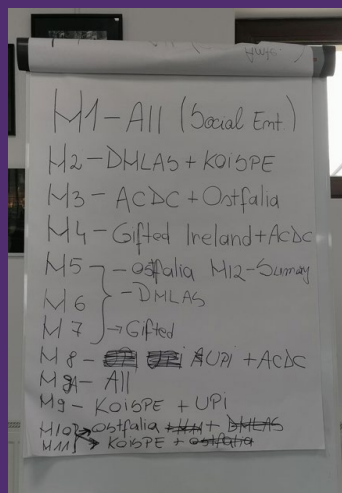 M1-All (Social Ent.)
M2-DMLAS + KOISPE
M3-ACDC + Ostfalia
M4-Gifted Ireland+ACDC
M5 -Ostfalia M12-Sumay
M6 -DMLAS
M7 →Gifted
M8- UPi +ACDC
M9A- All
M9-KOISPE + UPi
M10 Ostfalia + DMLAS
M11 KOISPE + ostfalia